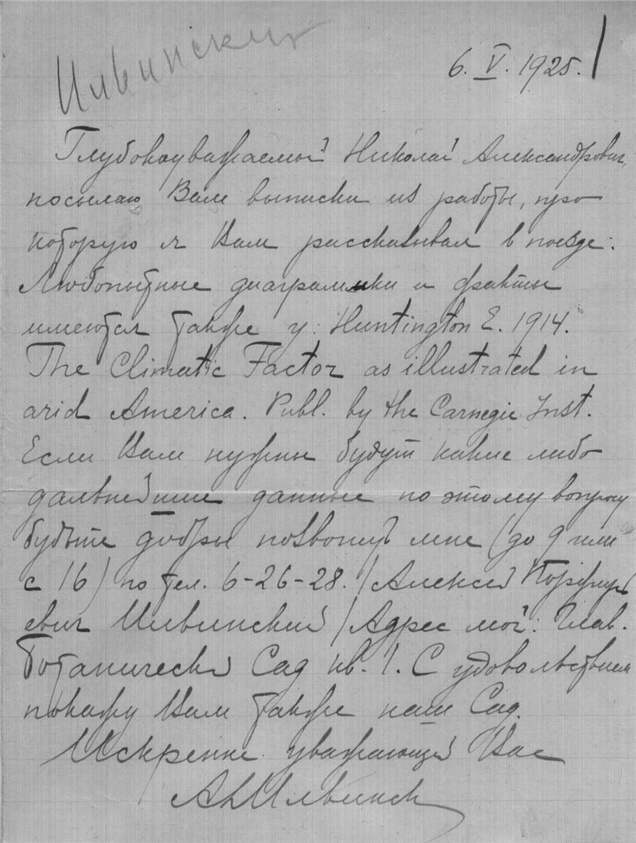 Ильинский
6. V. 1925.
Глубокоуважаемый Николай Александрович,
посылаю Вам выписки из работы, про
которую я Вам рассказывал в поезде.
Любопытные диаграммки и факты
имеются также у: Huntington E. 1914.
The Climatic Factor as illustrated in
arid America. Publ. by the Carnegie Inst.
Если Вам нужны будут какие либо
дальнейшие данные по этому вопросу
будьте добры позвонить мне (до 9 или
с 16) по тел. 6-26-28. /Алексей Порфирь
евич Ильинский/ Адрес мой: Глав.
Ботанический Сад кв. 1. С удовольствием
покажу Вам также наш Сад.
Искренне уважающий Вас
А Ильинск